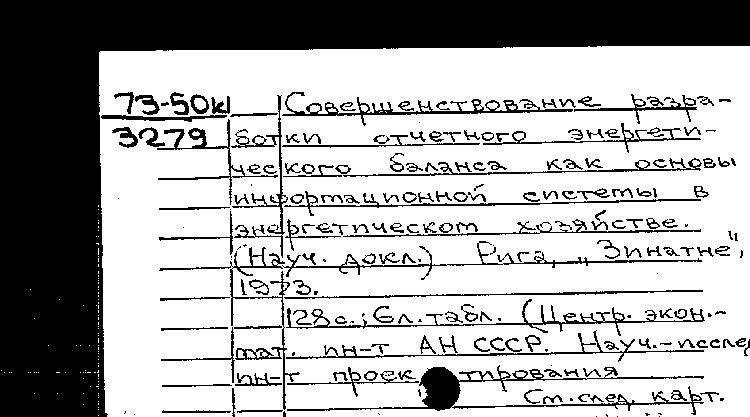 73-50к Совершенствование разра-
3279 ботки отчетного энергети-
ческого баланса как основы
информационной системы в
энергетическом хозяйстве.
(Науч. докл.) Рига, „Зинатне",
1973.
128 с.; 6 л. табл. (Центр. экон.-
мат. ин-т АН СССР. Науч.-исслед
ин-т проектирования
См. след. карт.